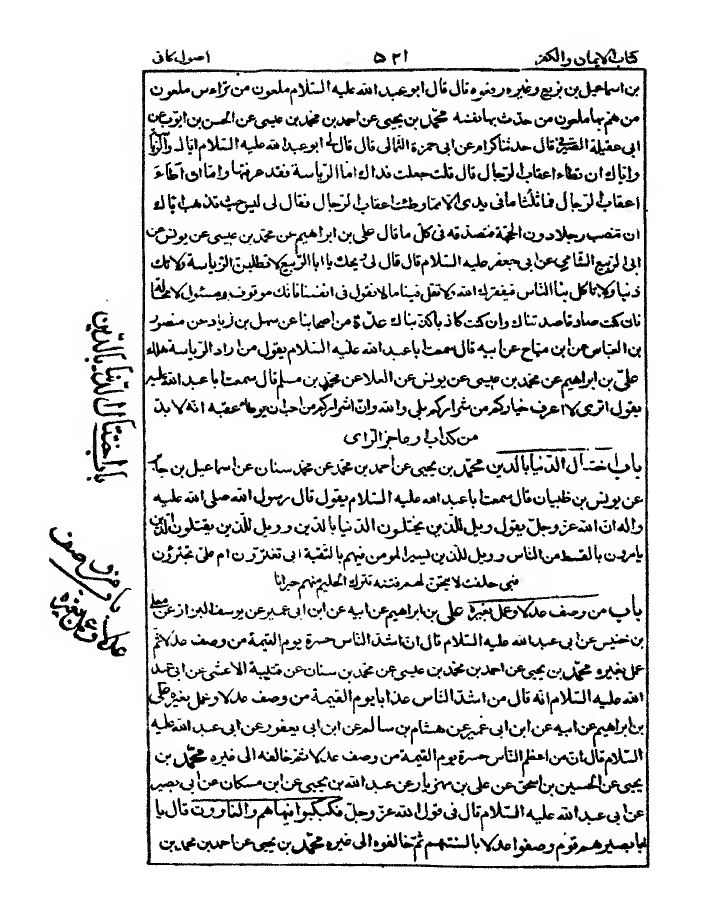 كتاب الايمان والكفر ٥٢١ اصول كافى
بن اسماعيل بن بزيع وغيره رفعوه قال قال ابو عبد الله عليه السلام ملعون من ترأس ملعون
من هم بها ملعون من حدث بها نفسه محمد بن يحيى عن احمد بن محمد بن عيسى عن الحسن بن ايوب عن
ابى عقيلة الصيرفى قال حدثنا كرام عن ابى حمزة الثمالى قال قال لى ابو عبد الله عليه السلام اياك والرياسة
واياك ان تطاء اعقاب الرجال قال قلت جعلت فداك اما الرياسة فقد عرفتها واما ان اطاء
اعقاب الرجال فما ثلثا ما فى يدى الا مما وطئت اعقاب الرجال فقال لى ليس حيث تذهب اياك
ان تنصب رجلا دون الحجة فتصدقه فى كل ما قال على بن ابراهيم عن محمد بن عيسى عن يونس عن
ابى الربيع الشامى عن ابى جعفر عليه السلام قال قال لى ويحك يا ابا الربيع لا تطلبن الرياسة ولا تك
ذئبا ولا تاكل بنا الناس فيفقرك الله ولا تقل فينا ما لا نقول فى انفسنا فانك موقوف ومسئول لا محالة
فان كنت صادقا صدقناك وان كنت كاذبا كذبناك عدة من اصحابنا عن سهل بن زياد عن منصور
بن العباس عن ابن مياح عن ابيه قال سمعت ابا عبد الله عليه السلام يقول من اراد الرياسة هلك
على بن ابراهيم عن محمد بن عيسى عن يونس عن العلا عن محمد بن مسلم قال سمعت ابا عبد الله عليه
يقول اترى لا اعرف خياركم من شراركم بلى والله وان شراركم من احب ان يوطا عقبه انه لا بد
من كذاب او عاجز الراى
باب اختتال الدنيا بالدين محمد بن يحيى عن احمد بن محمد عن محمد سنان عن اسماعيل بن جابر
عن يونس بن ظبيان قال سمعت ابا عبد الله عليه السلام يقول قال رسول الله صلى الله عليه
واله ان الله عز وجل يقول ويل للذين يختلون الدنيا بالدين وويل للذين يقتلون الذين
يامرون بالقسط من الناس وويل للذين يسير المومن فيهم بالتقية ابى يغترون ام على يجترؤن
فبى حلفت لا تيحن لهم فتنة تترك الحليم منهم حيرانا
باب من وصف عدلا وعمل بغيره على بن ابراهيم عن ابيه عن ابن ابى عمير عن يوسف البزاز عن معلى
بن خنيس عن ابى عبد الله عليه السلام قال ان اشد الناس حسرة يوم القيمة من وصف عدلا ثم
عمل بغيره محمد بن يحيى عن احمد بن محمد بن عيسى عن محمد بن سنان عن قتيبة الاعشى عن ابى عبد
الله عليه السلام انه قال من اشد الناس عذابا يوم القيمة من وصف عدلا وعمل بغيره على
بن ابراهيم عن ابيه عن ابن ابى عمير عن هشام بن سالم عن ابن ابى يعفور عن ابى عبد الله عليه
السلام قال ان من اعظم الناس حسرة يوم القيمة من وصف عدلا ثم خالفه الى غيره محمد بن
يحيى عن الحسين بن اسحق عن على بن مهزيار عن عبد الله بن يحيى عن ابن مسكان عن ابى بصير
عن ابى عبد الله عليه السلام قال فى قول الله عز وجل فكبكبوا فيها هم والغاوون قال يا
ابا بصير هم قوم وصفوا عدلا بالسنتهم ثم خالفوه الى غيره محمد بن يحيى عن احمد بن محمد بن
باب اختتال الدنيا بالدين
باب من وصف
عدلا وعمل بغيره